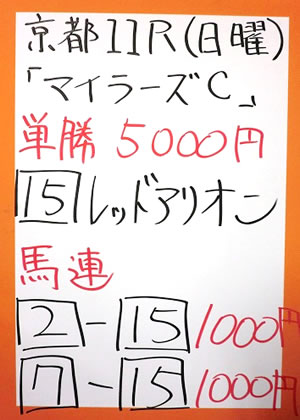 京都11R(日曜)
「マイラーズC」
単勝5000円
15レッドアリオン
馬連
2-15 1000円
7-15 1000円